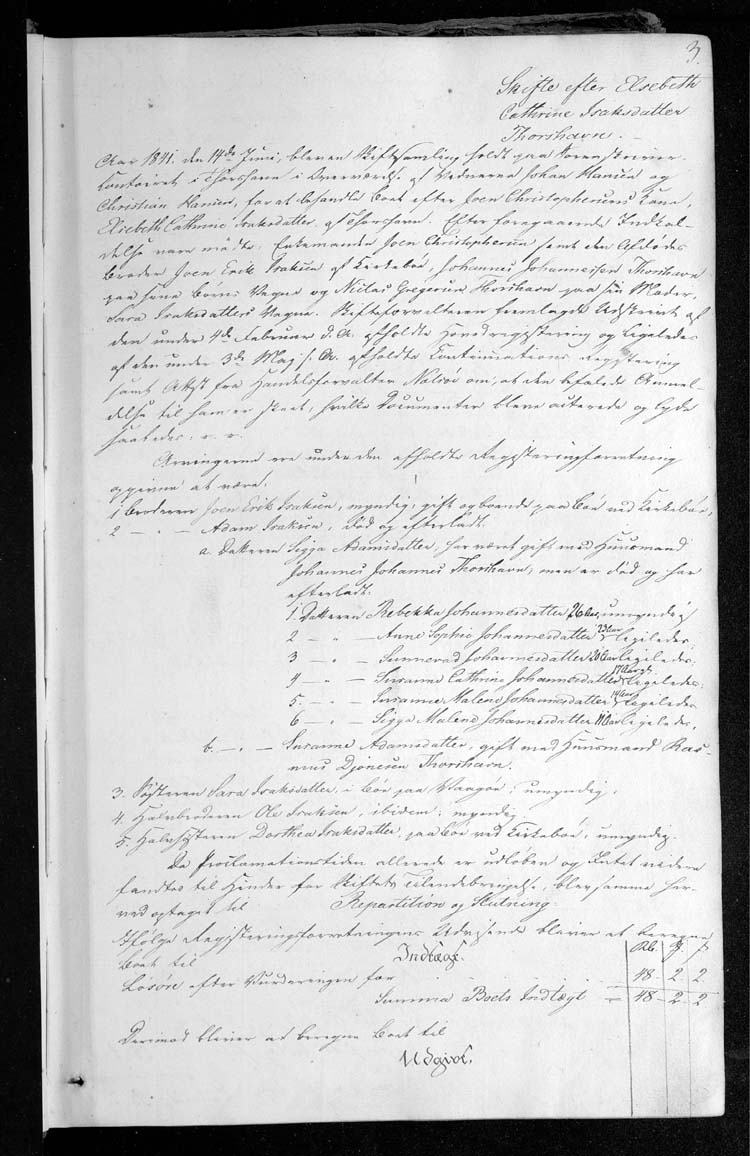 3.
Skifte efter Elsebeth
Cathrine Isaksdatter
Thorshavn.
Aar 1841 den 14de Juni, blev en Skiftesamling holdt paa Sorenskriver
Contoiret i Thorshavn i Overværelse af Vidnerne Johan Hansen og
Christian Hansen, for at behandle Boet efter Joen Christophersens Kone,
Elsebeth Cathrine Isaksdatter af Thorshavn. Efter foregaaende Indkal-
delse vare mødte: Enkemanden Joen Christophersen samt den Afdødes
Broder Joen Erik Isaksen af Kirkebøe, Johannes Johannesson Thorshavn
paa sine Børns Vegne og Niclas Gregersen Thorshavn paa sin Moder,
Sara Isaksdatters Vegne. Skifteforvalteren fremlagde Udskrivt af
den under 4de Februar d. A. afholdte Hovedregistering og ligeledes
af den under 3de Maj s. A. afholdte Continuations Registering
samt Attest fra Handelsforvalter Nolsøe om, at den befalede Anmel-
delse til ham er skeet, hvilke Documenter bleve acterede og lyde
saaledes: v. v.
Arvingerne ere under den afholdte Registeringsforretning
opgivne at være:
1 Broderen Joen Erik Isaksen, myndig, gift og boende paa Bøe ved Kirkebøe,
2 — " — Adam Isaksen, død og efterladt:
a. Datteren Sigga Adamsdatter, har været gift med Huusmand
Johannes Johannes Thorshavn, men er død og har
efterladt:
1. Datteren Rebekka Johannesdatter 26 Aar, umyndig
2 — " — Anne Sophie Johannesdatter 23 Aar ligeledes
3 — " — Sunneva Johannesdatter 20 Aar ligeledes.
4 — " — Susanne Cathrine Johannesdatter 17 Aar gl. ligeledes:
5. — " — Susanne Malene Johannesdatter 14 Aar ligeledes
6 — " — Sigga Malene Johannesdatter 11 Aar ligeledes,
b. — " — Susanne Adamsdatter, gift med Huusmand Ras-
mus Djonesen Thorshavn.
3. Søsteren Sara Isaksdatter, i Bøe paa Vaagøe: umyndig:
4. Halvbroderen Ole Isaksen, ibidem: myndig
5. Halvsøstern Dorthea Isaksdatter, paa Bøe ved Kirkebøe, umyndig.
Da Proclamationstiden allerede er udløben og Intet videre
fandtes til Hinder for Skiftets Tilendebringelse, blev samme her-
ved optaget til Repartition og Slutning.
Ifølge Registeringsforretningens Udvisende bliver at beregne
Boet til
Indtægt. Rb. β. β
Løsøre efter Vurderingen for 48 - 2 - 2
Summa Boets Indtægt = 48 - 2 - 2
Derimod bliver at beregne Boet til
Udgivt.